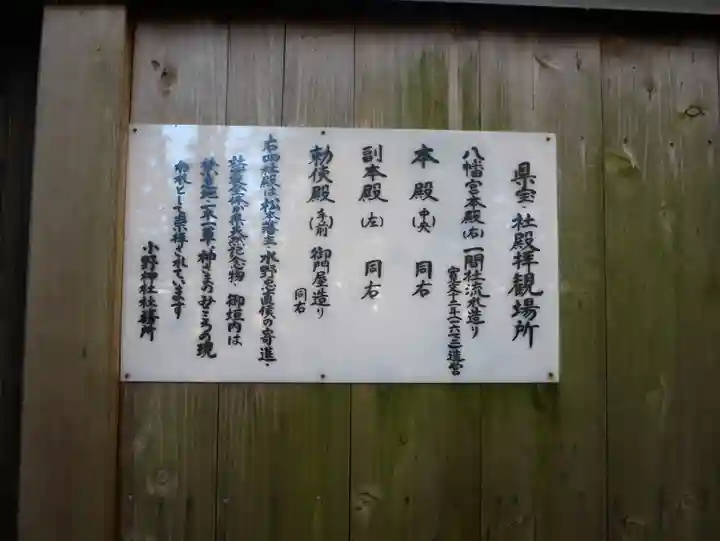 県宝・社殿拝観場所
八幡宮本殿(右) 一間社流れ造り
寛文十二年(一六七二)造営
本殿(中央) 同右
副本殿(左) 同右
勅使殿(手前) 御門屋造り
同右
右四社殿は松本藩主・水野忠直候の寄進・
社叢全体が県天然記念物・御垣内は
禁足地・一木一草・神さまのみこころの現
われとして崇拝されています
小野神社社務所